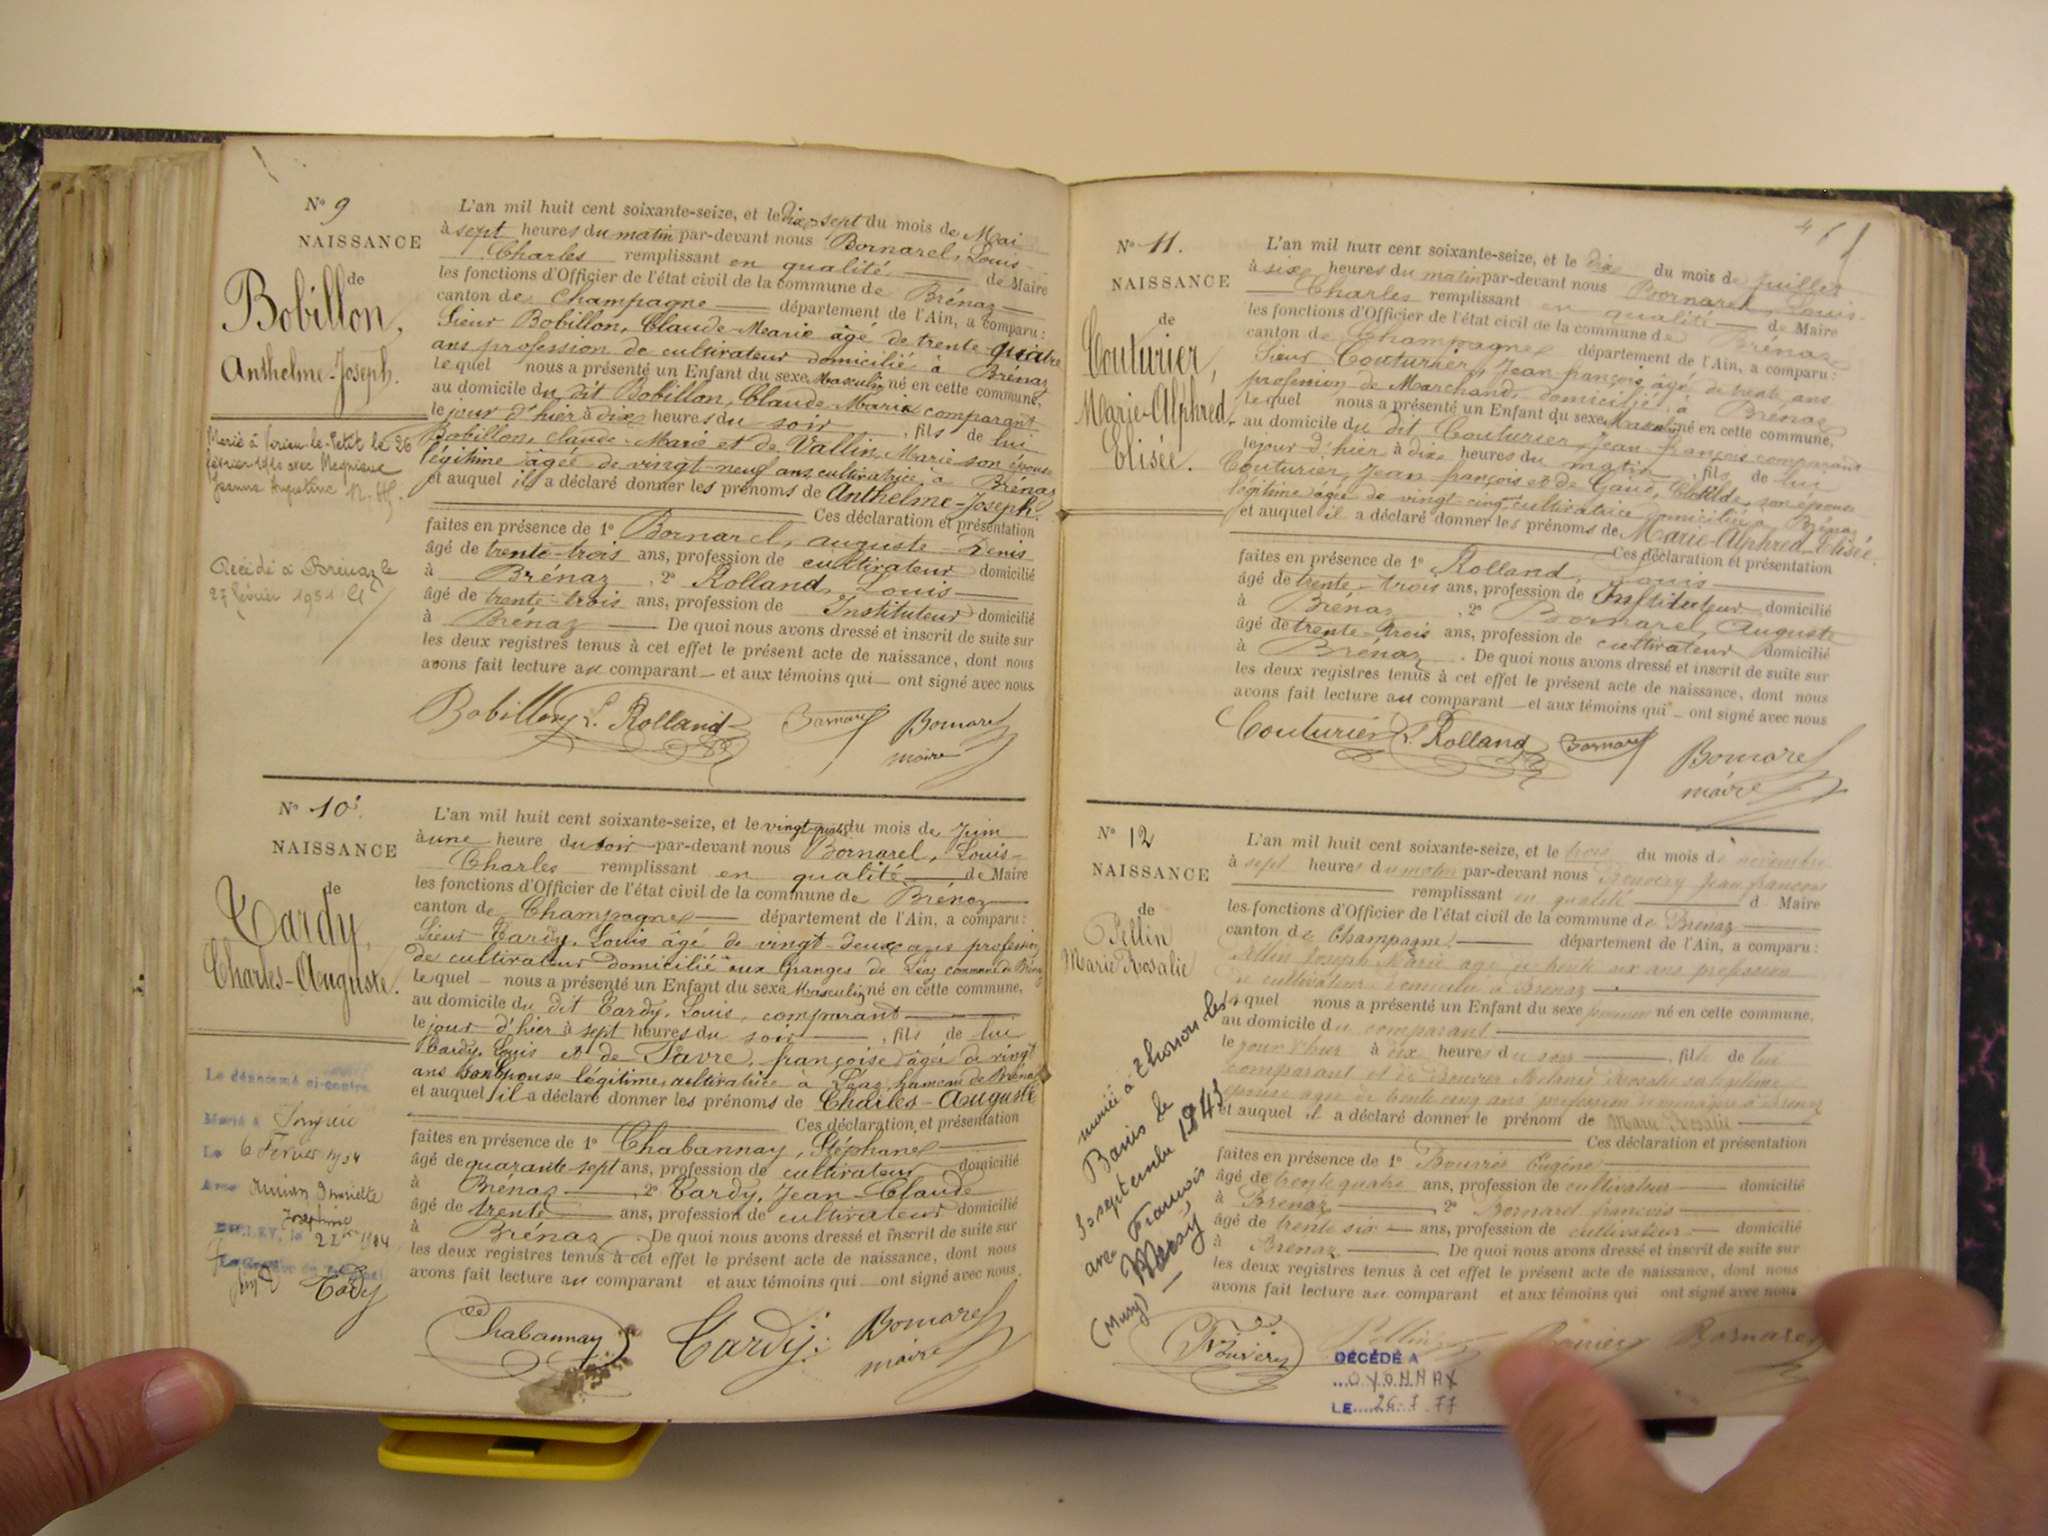 N° 9
NAISSANCE
de
Bobillon,
Anthelme-Joseph.
L'an mil huit cent soixante-seize, et le dix sept du mois de Mai
à sept heures du matin par-devant nous Bornarel, Louis-
Charles remplissant en qualité de Maire
les fonctions d'Officier de l'état civil de la commune de Brénaz
canton de Champagne département de l'Ain, a comparu :
Sieur Bobillon, Claude-Marie âgé de trente-quatre
ans profession de cultivateur domicilié à Brénaz
Lequel nous a présenté un Enfant du sexe Masculin né en cette commune,
au domicile du dit Bobillon, Claude-Marie comparant
le jour d'hier à dix heures du soir, fils de lui
Bobillon, Claude-Marie et de Vallin, Marie son épouse
légitime âgée de vingt-neuf ans cultivatrice, à Brénaz
et auquel il a déclaré donner les prénoms de Anthelme-Joseph.
Ces déclaration et présentation
faites en présence de 1° Bornarel, auguste-Denis
âgé de trente-trois ans, profession de cultivateur domicilié
à Brénaz, 2° Rolland, Louis
âgé de trente-trois ans, profession de Instituteur domicilié
à Brénaz De quoi nous avons dressé et inscrit de suite sur
les deux registres tenus à cet effet le présent acte de naissance, dont nous
avons fait lecture au comparant et aux témoins qui ont signé avec nous
Bobillon L. Rolland Bornarel Bornarel
maire
Marié à le Petit le 26
février avec
Jeanne
Décédé à Brénaz le
27 février 1951
N° 10.
NAISSANCE
de
Tardy,
Charles-Auguste.
L'an mil huit cent soixante-seize, et le vingt-quatre du mois de Juin
à une heure du soir par-devant nous Bornarel, Louis-
Charles remplissant en qualité de Maire
les fonctions d'Officier de l'état civil de la commune de Brénaz
canton de Champagne département de l'Ain, a comparu :
Sieur Tardy, Louis âgé de vingt-deux ans profession
de cultivateur domicilié aux Granges de Léaz commune de Brénaz
Lequel nous a présenté un Enfant du sexe Masculin né en cette commune,
au domicile du dit Tardy, Louis, comparant
le jour d'hier à sept heures du soir, fils de lui
Tardy, Louis et de Favre, françoise âgée de vingt
ans son épouse légitime, cultivatrice à Léaz hameau de Brénaz
et auquel il a déclaré donner les prénoms de Charles-Auguste
Ces déclaration et présentation
faites en présence de 1° Chabannay, Stéphane
âgé de quarante-sept ans, profession de cultivateur domicilié
à Brénaz, 2° Tardy, Jean-Claude
âgé de trente ans, profession de cultivateur domicilié
à Brénaz De quoi nous avons dressé et inscrit de suite sur
les deux registres tenus à cet effet le présent acte de naissance, dont nous
avons fait lecture au comparant et aux témoins qui ont signé avec nous
Chabannay Tardy Bornarel
maire
Le dénommé ci-contre
Marié à
Le 6 Février
Avec
Joséphine
Tardy
N° 11.
NAISSANCE
de
Couturier,
Marie-Alphred-
Elisée.
L'an mil huit cent soixante-seize, et le dix du mois de Juillet
à six heures du matin par-devant nous Bornarel, Louis-
Charles remplissant en qualité de Maire
les fonctions d'Officier de l'état civil de la commune de Brénaz
canton de Champagne département de l'Ain, a comparu :
Sieur Couturier, Jean-françois, âgé de trente ans
profession de Marchand, domicilié à Brénaz
Lequel nous a présenté un Enfant du sexe Masculin né en cette commune,
au domicile du dit Couturier, Jean-françois comparant
le jour d'hier à dix heures du matin, fils de lui
Couturier, Jean françois et de son épouse
légitime âgée de vingt-cinq cultivatrice domiciliée à Brénaz
et auquel il a déclaré donner les prénoms de Marie-Alphred-Elisée.
Ces déclaration et présentation
faites en présence de 1° Rolland, Louis
âgé de trente-trois ans, profession de Instituteur, domicilié
à Brénaz, 2° Bornarel, Auguste
âgé de trente-trois ans, profession de cultivateur domicilié
à Brénaz. De quoi nous avons dressé et inscrit de suite sur
les deux registres tenus à cet effet le présent acte de naissance, dont nous
avons fait lecture au comparant et aux témoins qui ont signé avec nous
Couturier L. Rolland Bornarel Bornarel
maire
N° 12
NAISSANCE
de
Pellin
Marie Rosalie
L'an mil huit cent soixante-seize, et le trois du mois de novembre
à sept heures du matin par-devant nous Jean françois
remplissant en qualité d Maire
les fonctions d'Officier de l'état civil de la commune de Brénaz
canton de Champagne département de l'Ain, a comparu :
Pellin Joseph Marie âgé de trente six ans profession
de cultivateur domicilié à Brénaz
Lequel nous a présenté un Enfant du sexe féminin né en cette commune,
au domicile du comparant
le jour d'hier à dix heures du soir, fille de lui
comparant et de Rosalie sa légitime
épouse âgée de trente cinq ans profession de ménagère à Brénaz
et auquel il a déclaré donner le prénom de Marie Rosalie
Ces déclaration et présentation
faites en présence de 1° Bouvier Eugène
âgé de trente quatre ans, profession de cultivateur domicilié
à Brénaz, 2° Bornarel françois
âgé de trente six ans, profession de cultivateur domicilié
à Brénaz. De quoi nous avons dressé et inscrit de suite sur
les deux registres tenus à cet effet le présent acte de naissance, dont nous
avons fait lecture au comparant et aux témoins qui ont signé avec nous
Pellin Bouvier Bornarel
mariée à Thonon les
Bains le
30 septembre 1943
avec François
(Mury)
DÉCÉDÉ A
OYONNAX
LE 26-7 77